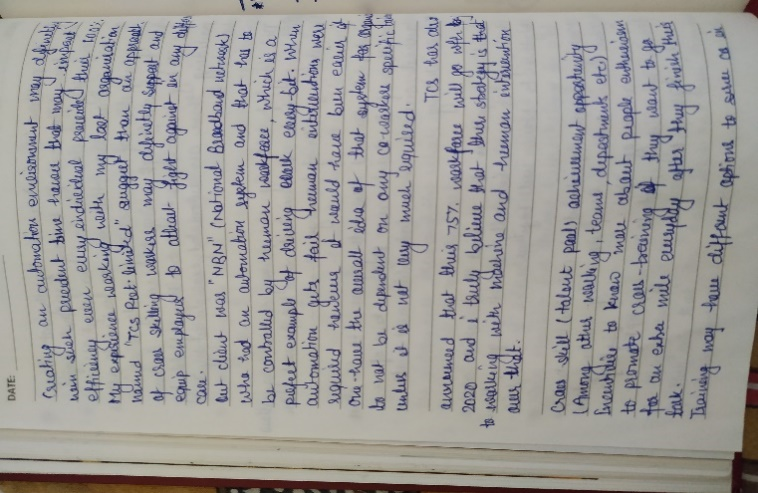 DATE:
Creating an automation environment may definitely
win such precedent time honour that may impart
efficiency even every individual precedes their
My experience working with my last organisation
named "TCS Pvt limited" suggest than an approach
of cross skilling worker may definitely support and
equip employees to atleast fight against in any
case.
But client was "NBN" (National Broadband network)
who had an automation system and that has to
be controlled by human workforce, which is a
prefect example of driving work easy but when
automation gets fail human interventions were
required however it would have been easier if
one have the overall idea of that system for
to not be dependent on any co-workers specific
unless it is not very much required.
TCS has also
announced that their 75% workforce will go with
2020 and I truly believe that their strategy is that
to working with machine and human intervention
over that.
Cross skill (talent pool) achievement opportunity
(Among others working, teams, departments etc)
to know more about people enthusiasm
to promote cross-training if they want to go
for an extra mile everyday after they finish their
task.
Training may have different options to serve as in